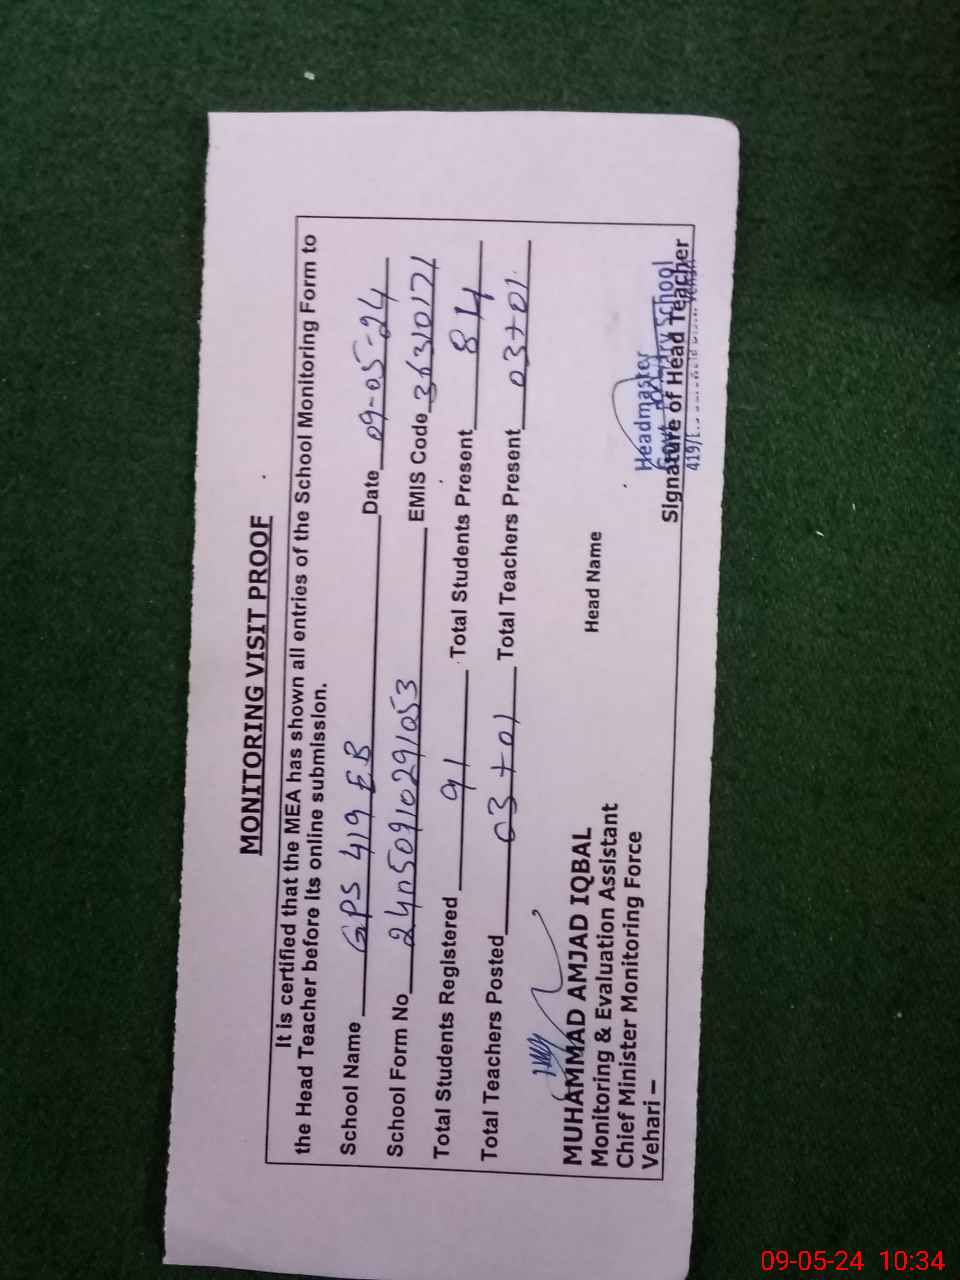 MONITORING VISIT PROOF
It is certified that the MEA has shown all entries of the School Monitoring Form to
the Head Teacher before its online submission.
School Name GPS 419 EB Date 09-05-24
School Form No 24050910291053 EMIS Code 36310171
Total Students Registered 91 Total Students Present 84
Total Teachers Posted 03+01 Total Teachers Present 03+01
MUHAMMAD AMJAD IQBAL
Monitoring & Evaluation Assistant
Chief Minister Monitoring Force
Vehari –
Head Name
Headmaster
Govt. Primary School
Signature of Head Teacher
419/E
09-05-24 10:34